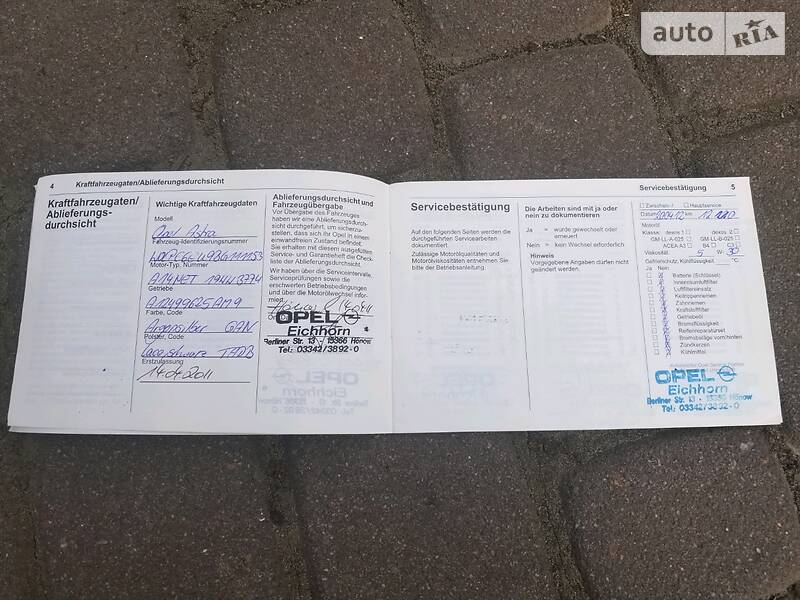 auto RIA
4 Kraftfahrzeugaten/Ablieferungsdurchsicht
Kraftfahrzeugaten/
Ablieferungs-
durchsicht
Wichtige Kraftfahrzeugdaten
Modell
Opel Astra
Fahrzeug-Identifizierungsnummer
Motor-Typ, Nummer
A14NET
Getriebe
Farbe, Code
Polster, Code
Erstzulassung
14.04.2011
Ablieferungsdurchsicht und
Fahrzeugübergabe
Vor Übergabe des Fahrzeuges
haben wir eine Ablieferungsdurch-
sicht durchgeführt, um sicherzu-
stellen, dass sich Ihr Opel in einem
einwandfreien Zustand befindet.
Sie erhalten mit diesem
Service- und Garantieheft die Check-
liste der Ablieferungsdurchsicht.
Wir haben über die Serviceintervalle,
Serviceprüfungen sowie die
erschwerten Betriebsbedingungen
und über die Motorölwechsel infor-
miert.
OPEL
Eichhorn
Berliner Str. 13 15366 Hönow
Tel.: 03342/3892-0
Servicebestätigung 5
Servicebestätigung
Auf den folgenden Seiten werden die
durchgeführten Servicearbeiten
dokumentiert.
Zulässige Motorölqualitäten und
Motorölviskositäten entnehmen Sie
bitte der Betriebsanleitung.
Die Arbeiten sind mit ja oder
nein zu dokumentieren
Ja = wurde gewechselt oder
erneuert
Nein = kein Wechsel erforderlich
Hinweis
Vorgegebene Angaben dürfen nicht
geändert werden.
Zwischen-/ Hauptservice
Datum km
Motoröl
Klasse: dexos 1 dexos 2
GM-LL-A-025 GM-LL-B-025
ACEA A3 B4 C3
Viskosität 5 W- 30
Gefrierschutz, Kühlflüssigkeit: °C
Ja Nein
Batterie (Schlüssel)
Innenraumluftfilter
Luftfiltereinsatz
Keilrippenriemen
Zahnriemen
Kraftstofffilter
Getriebeöl
Bremsflüssigkeit
Reifenreparaturset
Bremsbeläge vorn/hinten
Zündkerzen
Kühlmittel
OPEL
Eichhorn
Berliner Str. 13 - 15366 Hönow
Tel.: 03342/3892-0